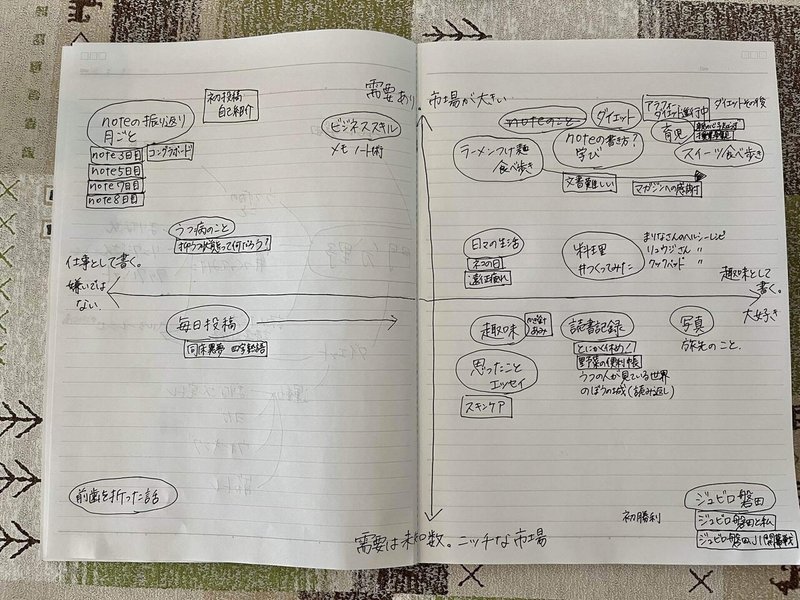 需要あり。
市場が大きい
noteの振り返り
月ごと
初投稿
自己紹介
note3日目
コングラボード
note5日目
note7日目
note8日目
ビジネススキル
メモ ノート術
うつ病のこと
抑うつ状態って何だろう?
仕事として書く。
嫌いでは
ない
毎日投稿
同床異夢 四字熟語
前歯を折った話
noteのこと
ダイエット
アラフィフ
ダイエット進行中
ダイエットその後
ラーメンつけ麺
/食べ歩き
noteの書き方?
学び
育児
スイーツ/食べ歩き
文書難しい
マガジンへの感謝
日々の生活
ネコの日
遠征疲れ
料理
#つくってみた
まりなさんのヘルシーレシピ
リュウジさん 〃
クックパッド 〃
趣味として
書く。
大好き
趣味
かぎ針
あみ
読書記録
とにかく休め!
野菜の便利帳
うつの人が見ている世界
のぼうの城(読み返し)
写真
旅先のこと
思ったこと
エッセイ
スキンケア
初勝利
ジュビロ磐田
ジュビロ磐田と私
ジュビロ磐田J1開幕戦
需要は未知数。ニッチな市場